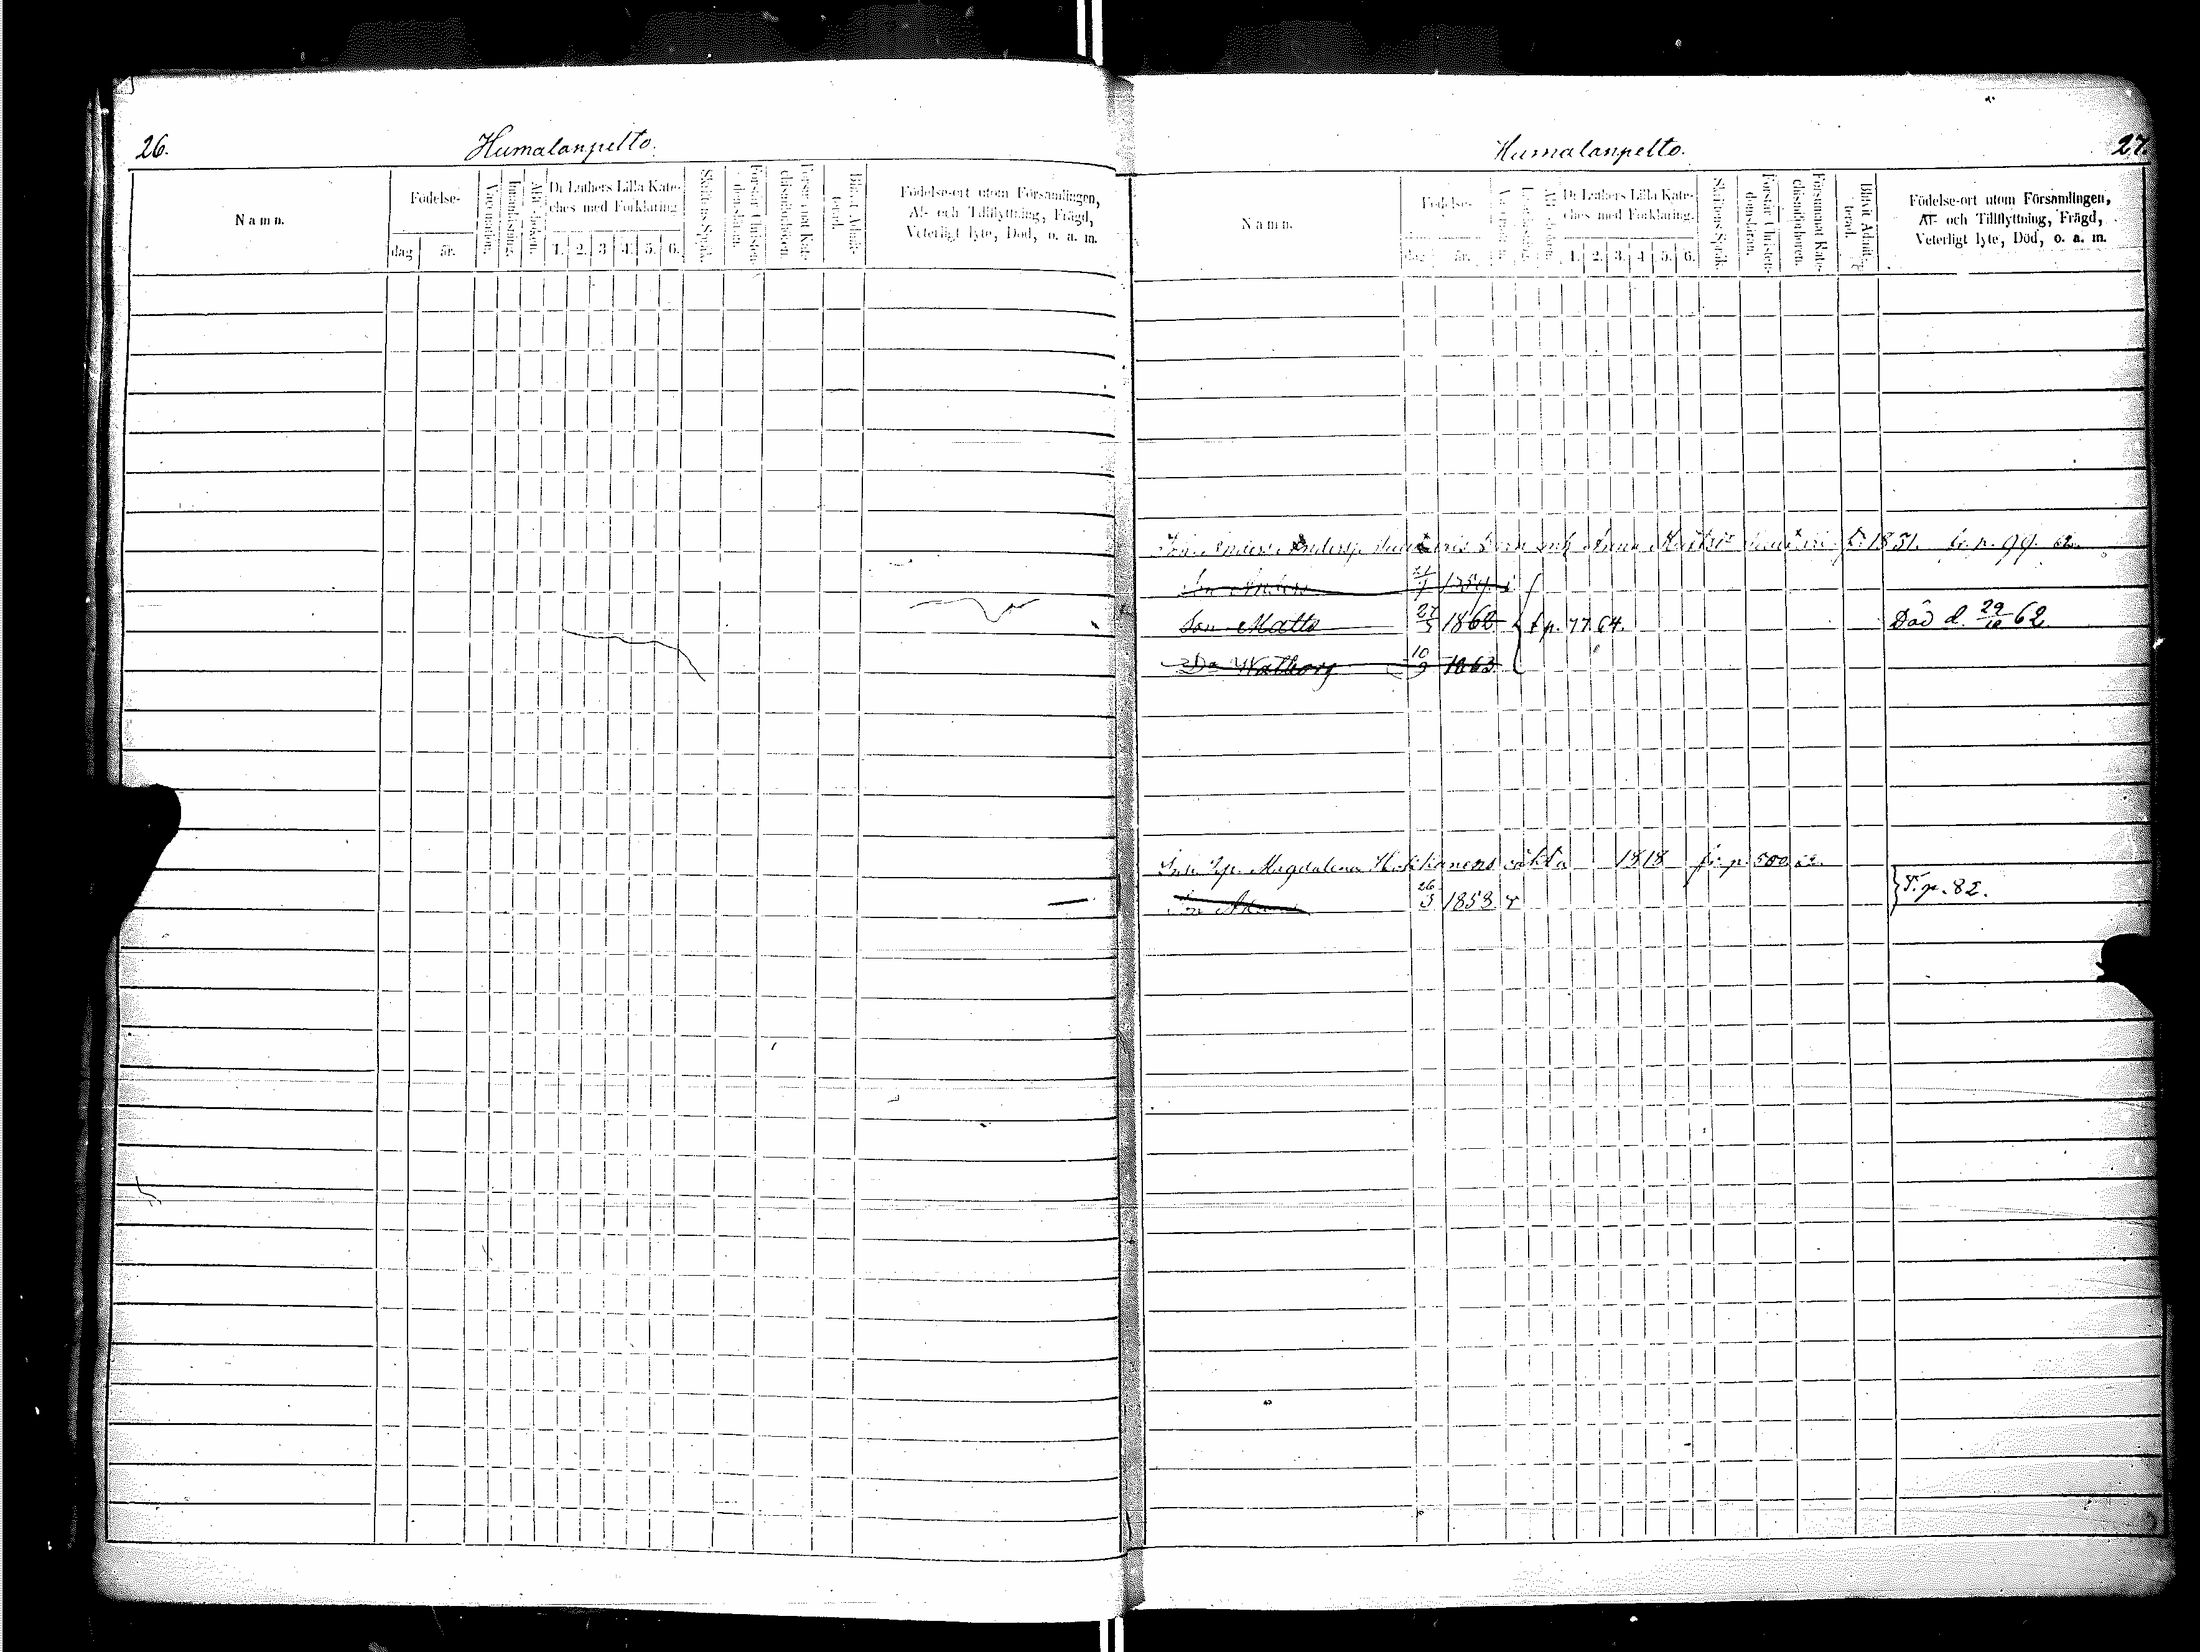 26.
Humalanpelto.
Namn.
Födelse-
dag
år.
Vaccination.
Innanläsning.
Abc-boken.
Dr Luthers Lilla Kate-
ches med Förklaring.
1. 2. 3. 4. 5. 6.
Skriftens Språk.
Förstår Christen-
domsläran.
Försummat Kate-
chismiförhören.
Blifvit Admit-
terad.
Födelse-ort utom Församlingen,
Af- och Tillflyttning, Frägd,
Veterligt lyte, Död, o. a. m.
Humalanpelto.
27.
Namn.
Födelse-
dag
år.
Dr Luthers Lilla Kate-
ches med Förklaring.
1. 2. 3. 4. 5. 6.
Skriftens Språk.
Förstår Christen-
domsläran.
Försummat Kate-
chismiförhören.
Blifvit Admit-
terad.
Födelse-ort utom Församlingen,
Af- och Tillflyttning, Frägd,
Veterligt lyte, Död, o. a. m.
Andersp. Anna 1831. p. 99.
Son Anders
Son Matts 27/5 1860 p. 77. 64. Död d. 29/10 62.
Do Walborg 10/9 1863
Magdalena oäkta 1818 fr. p. 500
T. p. 82.
Son 26/3 1853